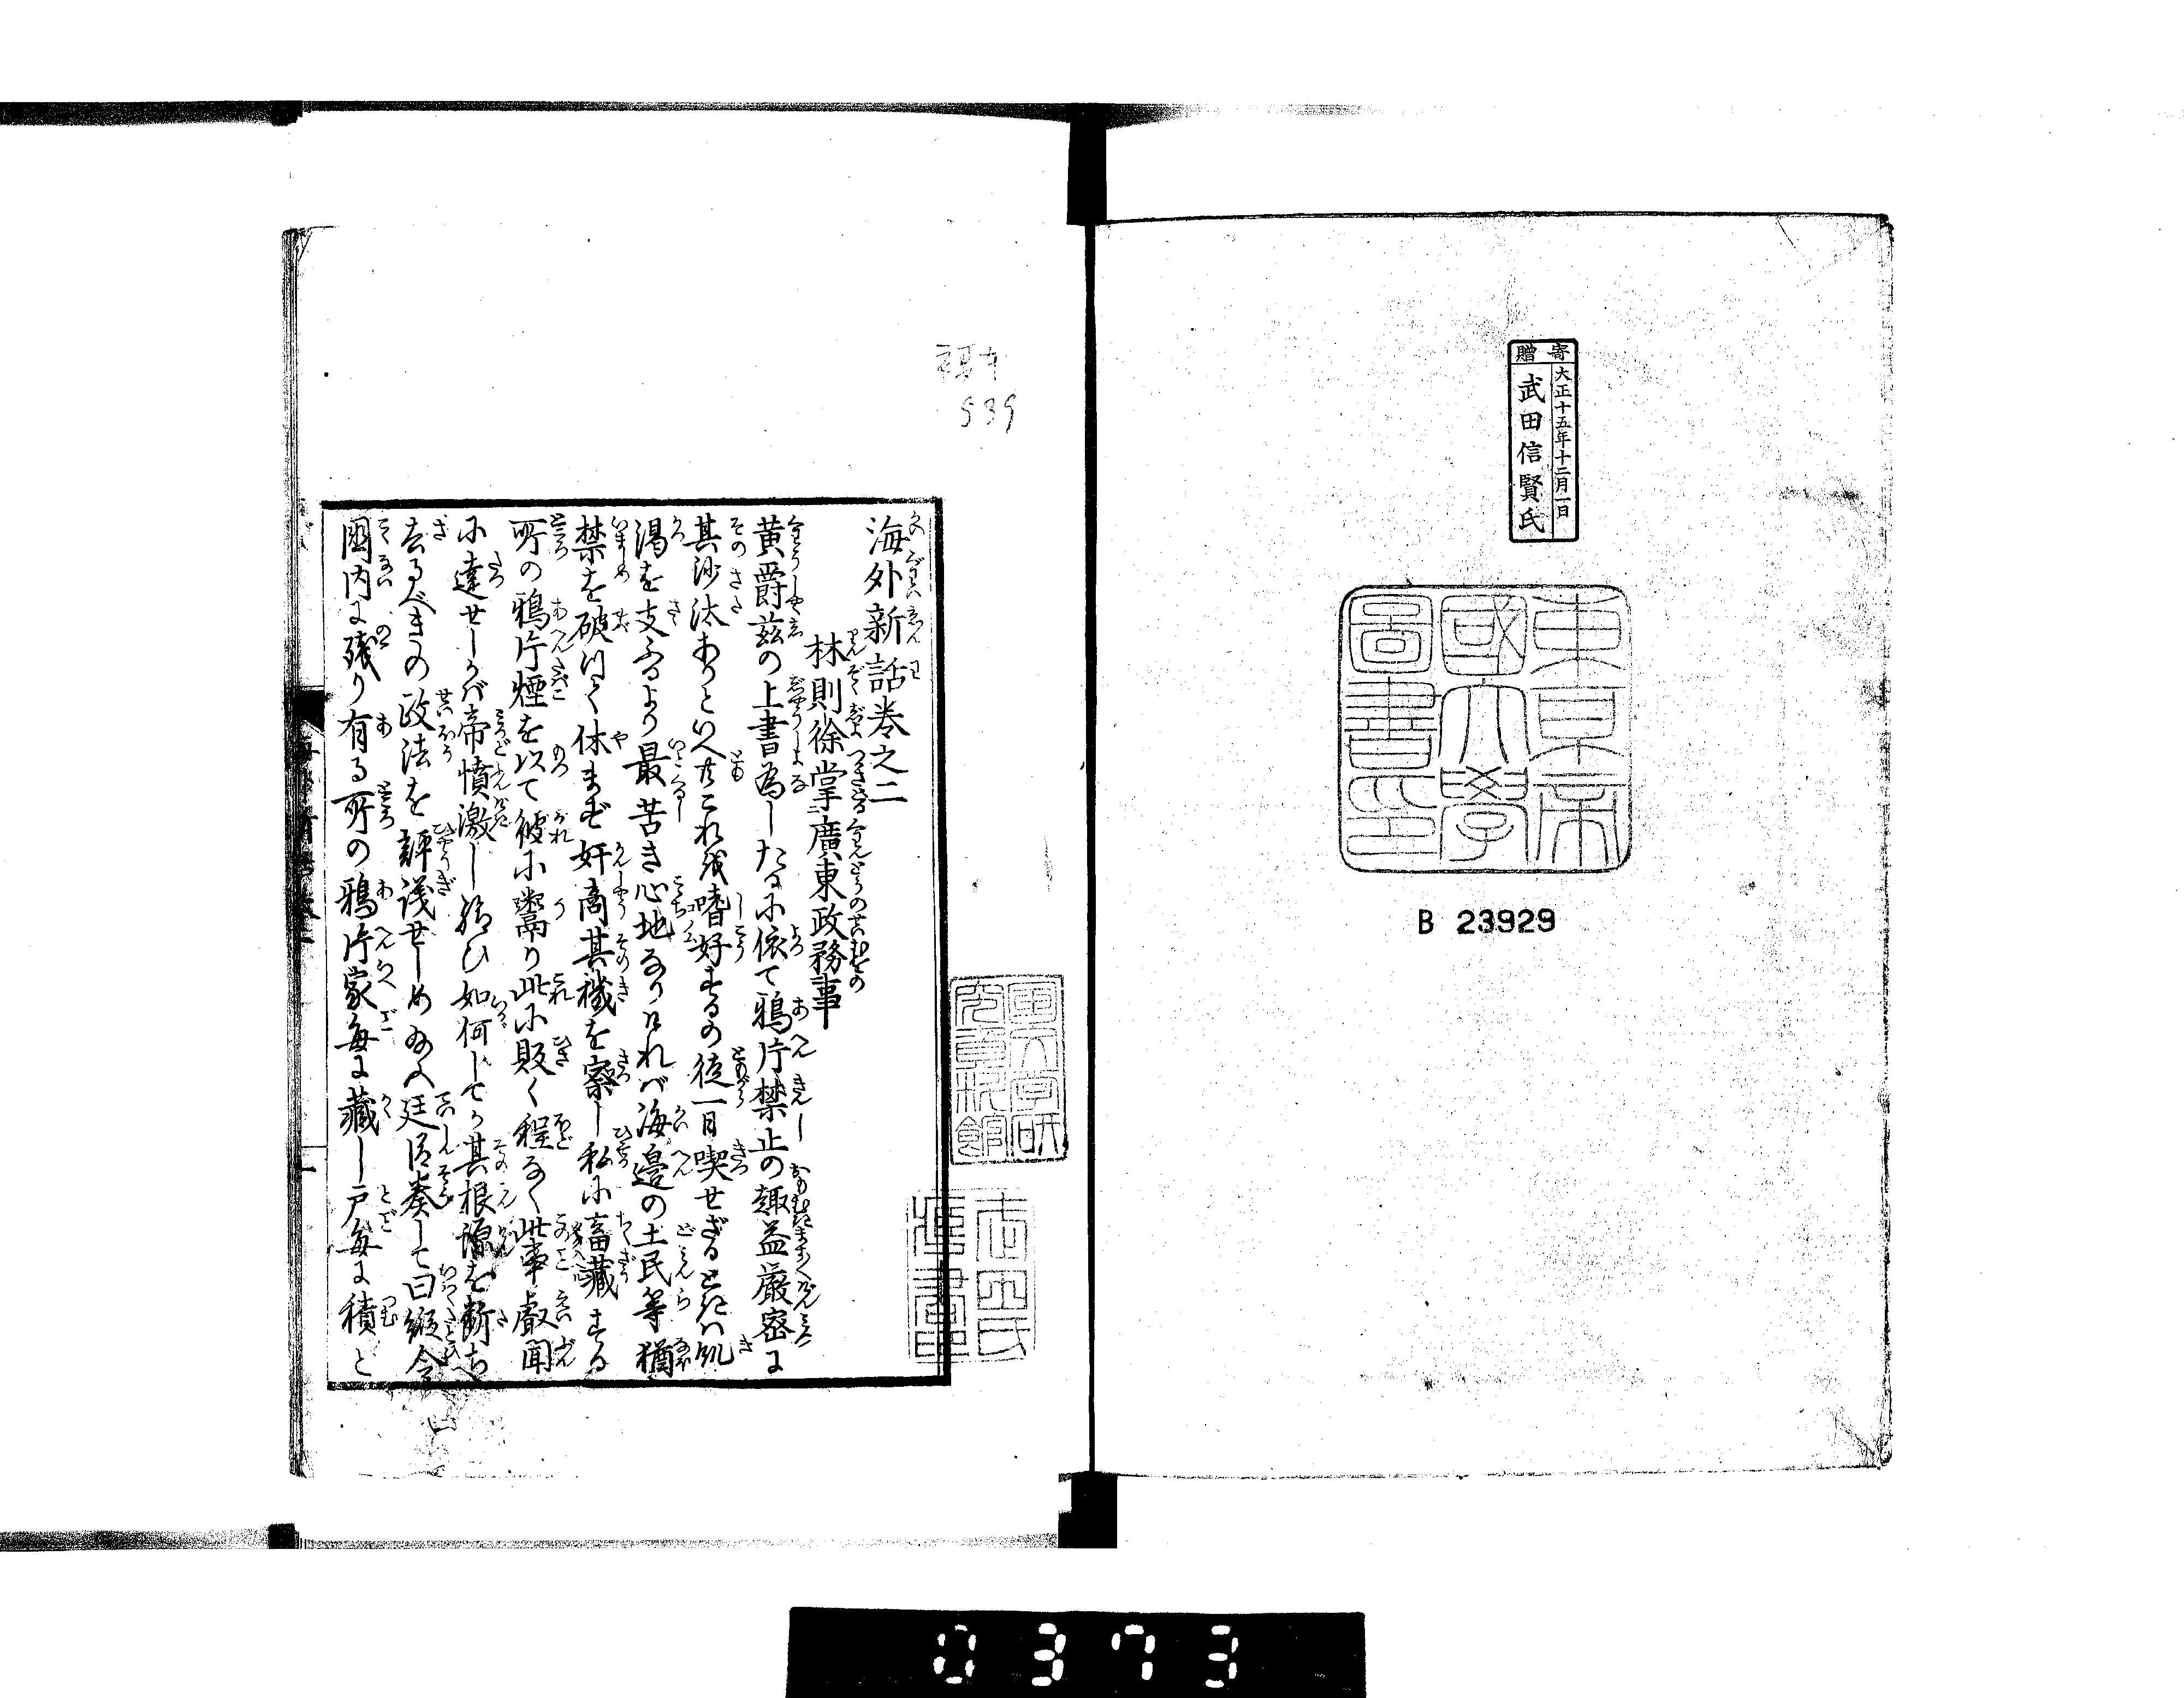 寄贈
大正十五年十二月一日
武田信賢氏
東京帝
國大學
圖書印
B 23929
939
海外新話巻之二
林則徐掌廣東政務事
黄爵茲の上書為したるに依て鴉片禁止の趣益嚴密に
其沙汰ありといへ共これを嗜好するの徒一日喫せざるときは飢
渇を支ふるより最苦き心地なりければ海邉の土民等猶
禁を破りて休まず奸商其機を察し私に畜藏する
所の鴉片煙を以て彼に鬻り此に販く程なく此事叡聞
に達せしかば帝憤激し給ひ如何してか其根源を断ち
去るべきの政法を評議せしめ給ふ廷臣奏して曰縦令
國内に殘り有る所の鴉片家毎に藏し戸毎に積と
0373